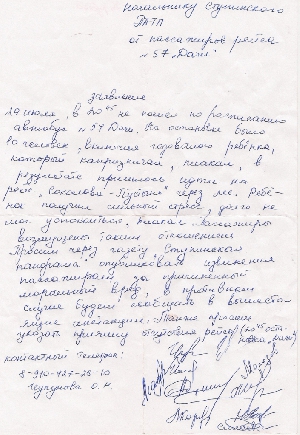 Начальнику Ступинского
ПАТП
от пассажиров рейса
"№ 57, Дачи"
Заявление
29 июля, в 20 45 не пошел по расписанию
автобус №57 Дачи. На остановке было
90 человек, включая годовалого ребёнка,
который капризничал, плакал, в
результате пришлось идти на
рейс "Соколова-Пустынь" через лес. Ребё-
нок получил сильный стресс, долго не
мог успокоиться, плакал. Пассажиры
возмущены таким отношением.
Просим через газету Ступинская
панорама опубликовать извинения
пассажирам за причинённый
моральный вред, в противном
случае будем сообщать в вышесто-
ящие инстанции. Также просим
указать причину отсутствия рейса (на
контактный телефон:
О. Н.